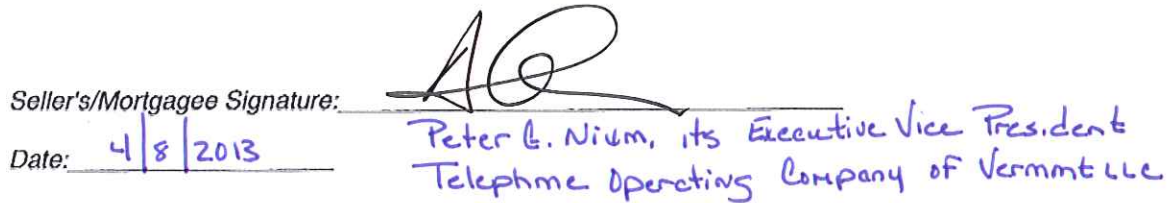 Seller's/Mortgagee Signature:
Peter G. Nixon, its Executive Vice President
Date: 4/8/2013
Telephone Operating Company of Vermont LLC